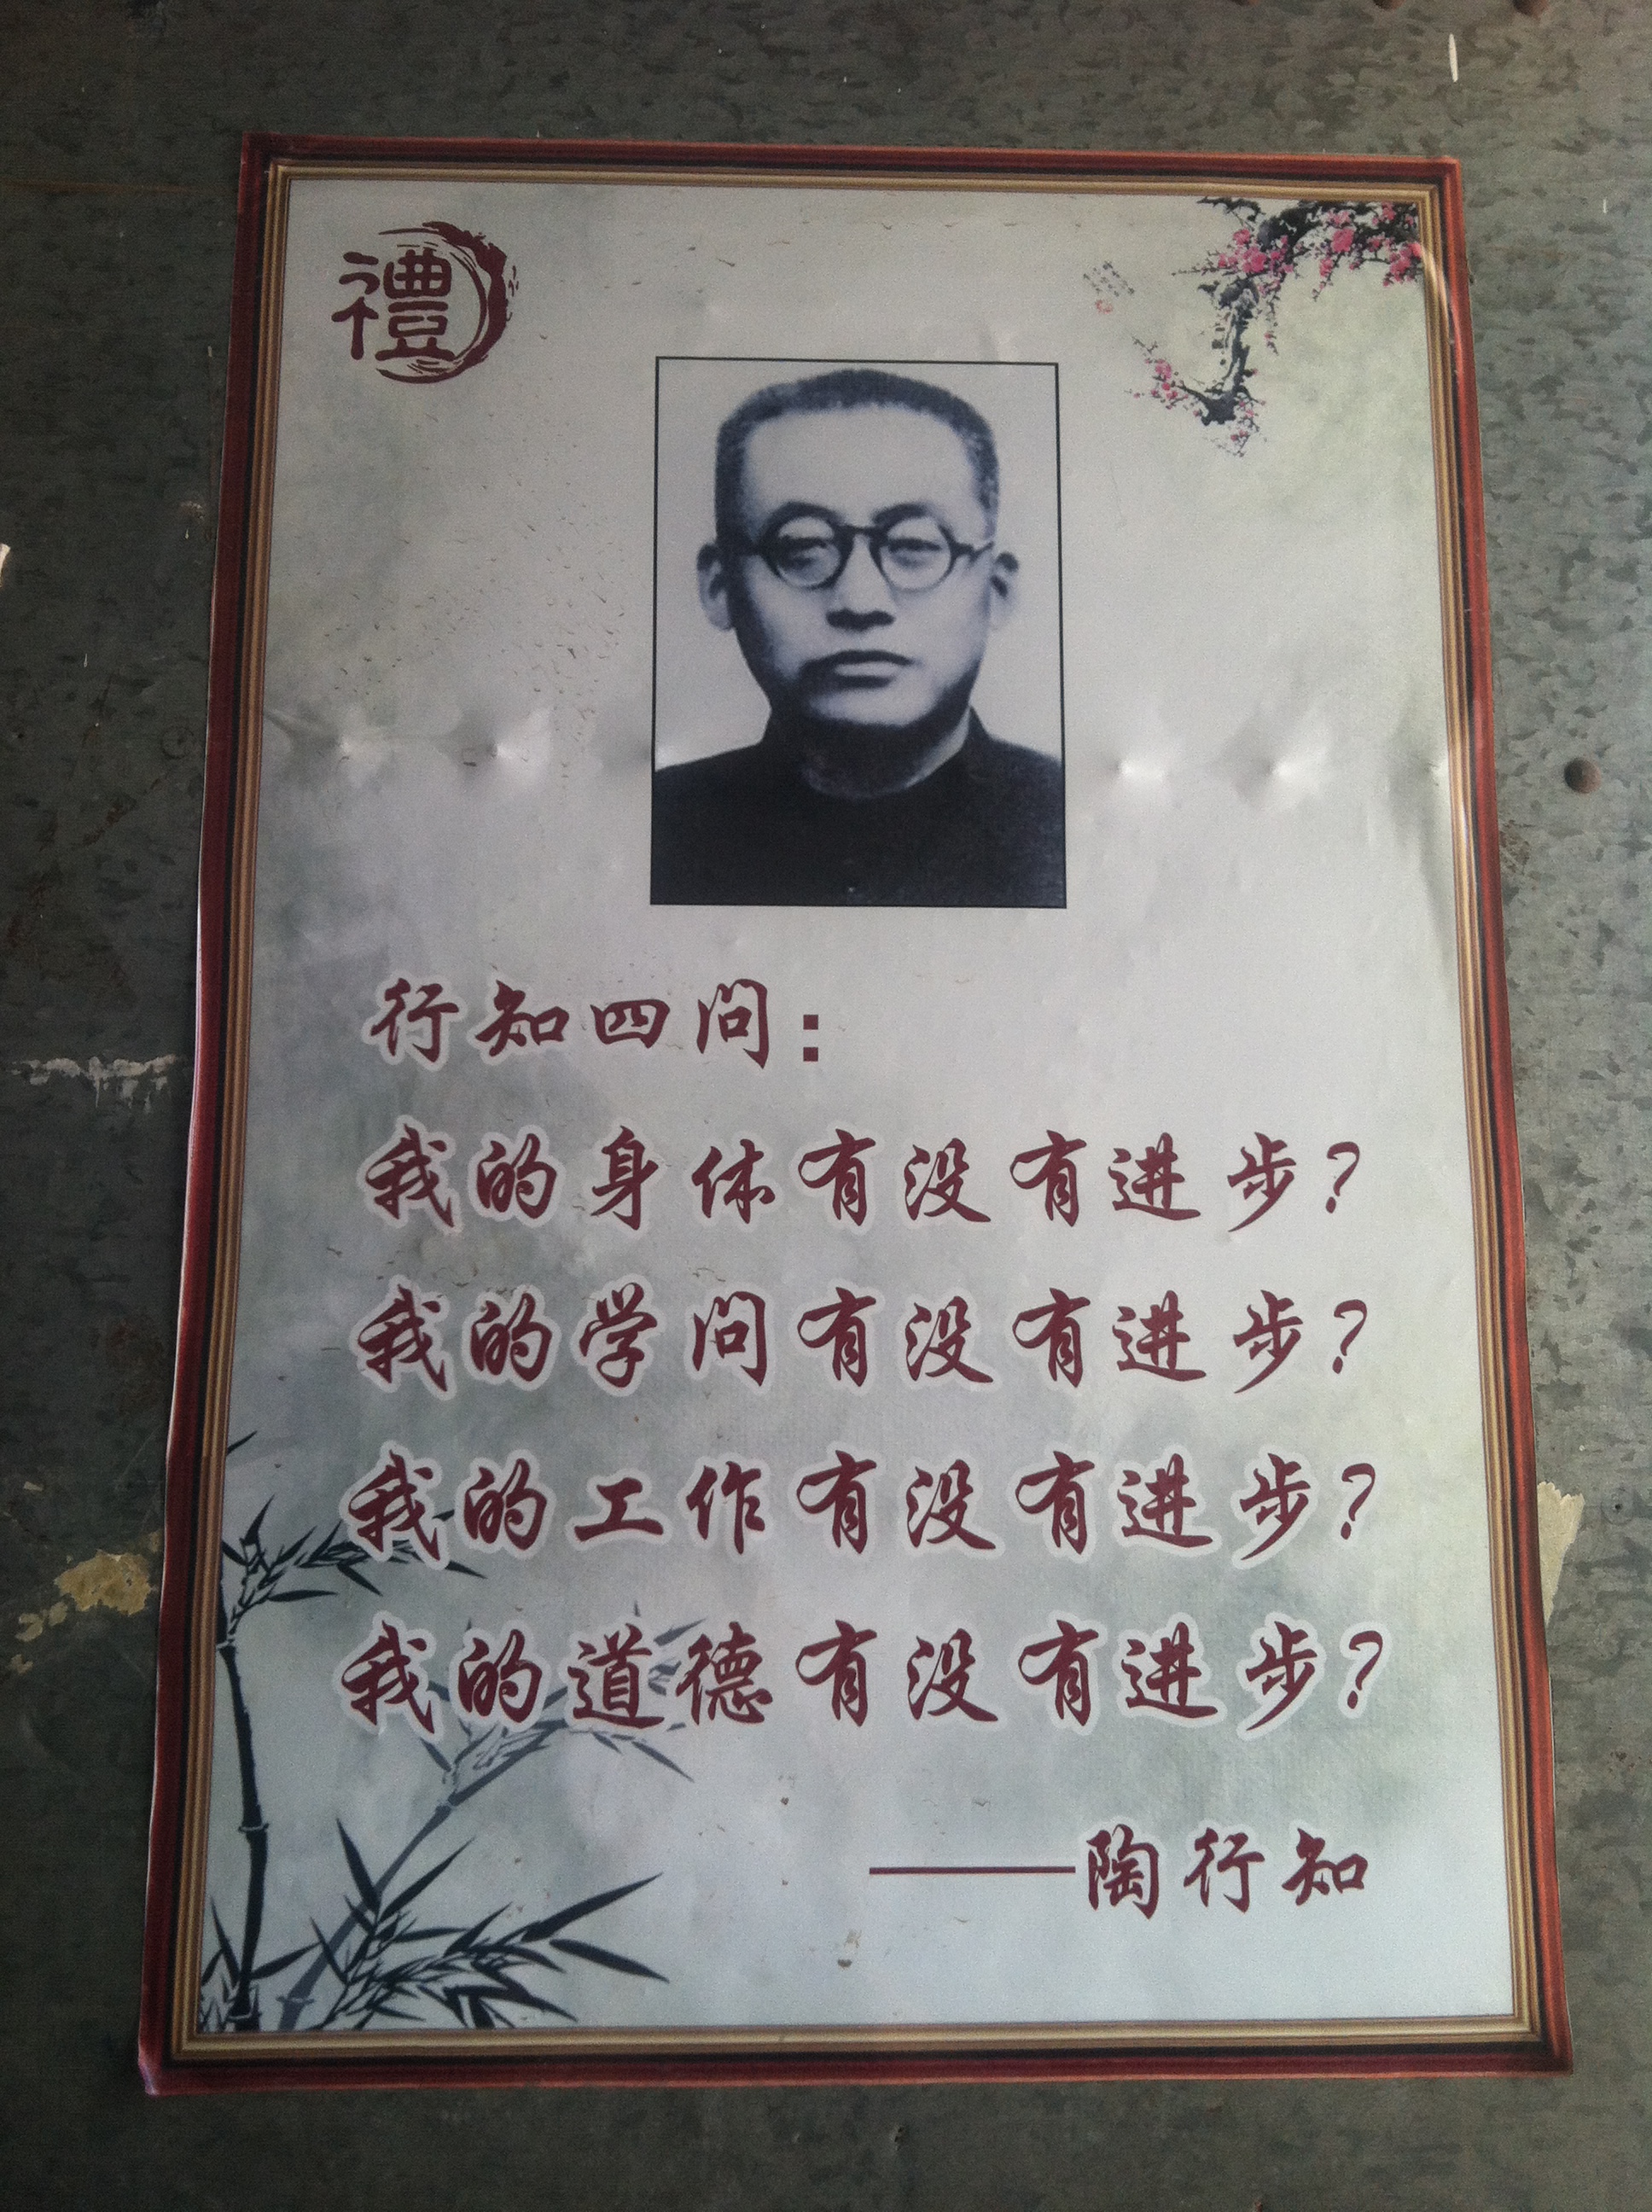 禮
行知四问：
我的身体有没有进步？
我的学问有没有进步？
我的工作有没有进步？
我的道德有没有进步？
——陶行知